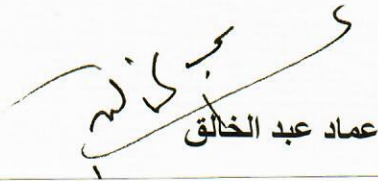 عماد عبد الخالق